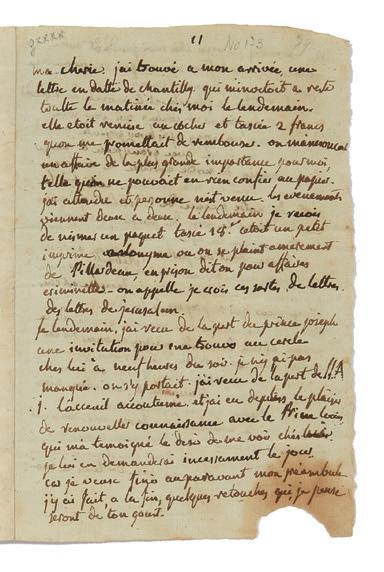 11 No 133
ma cherie. j'ai trouvé a mon arrivée, une
lettre en datte de chantilly qui minvitoit a reste
toutte la matinée chés moi le lendemain.
elle etoit remise au cocher et taxée 2 francs
quon me promettait de rembourser. on m'annoncait
un affaire de la plus grande importance pour moi,
telle quon ne pouvait en rien confier au papier.
j'ai attendu et personne n'est venu. les evenements
viennent deux a deux. le lendemain je recois
de nismes un paquet taxée 14s. c'etoit un petit
imprimé anonyme ou on se plaint amerement
de en prison dit on pour affaires
criminelles. on appelle je crois ces sortes de lettres
des lettres de jerusalem.
le lendemain, j'ai recu de la part du prince joseph
une invitation pour me trouver au cercle
chez lui a neuf heures du soir. je n'y ai pas
manqué. on s'y portait. j'ai recu de la part de S. A
j. l'acceuil accoutumé et j'ai eu depuis, le plaisir
de renouveller connaissance avec le
qui ma temoigné le desir de me voir chés lui.
je lui en demanderai incessament le jour.
car je veux finir auparavant mon préambule
j'y ai fait, a la fin, quelques retouches qui, je pense
seront de ton gout.